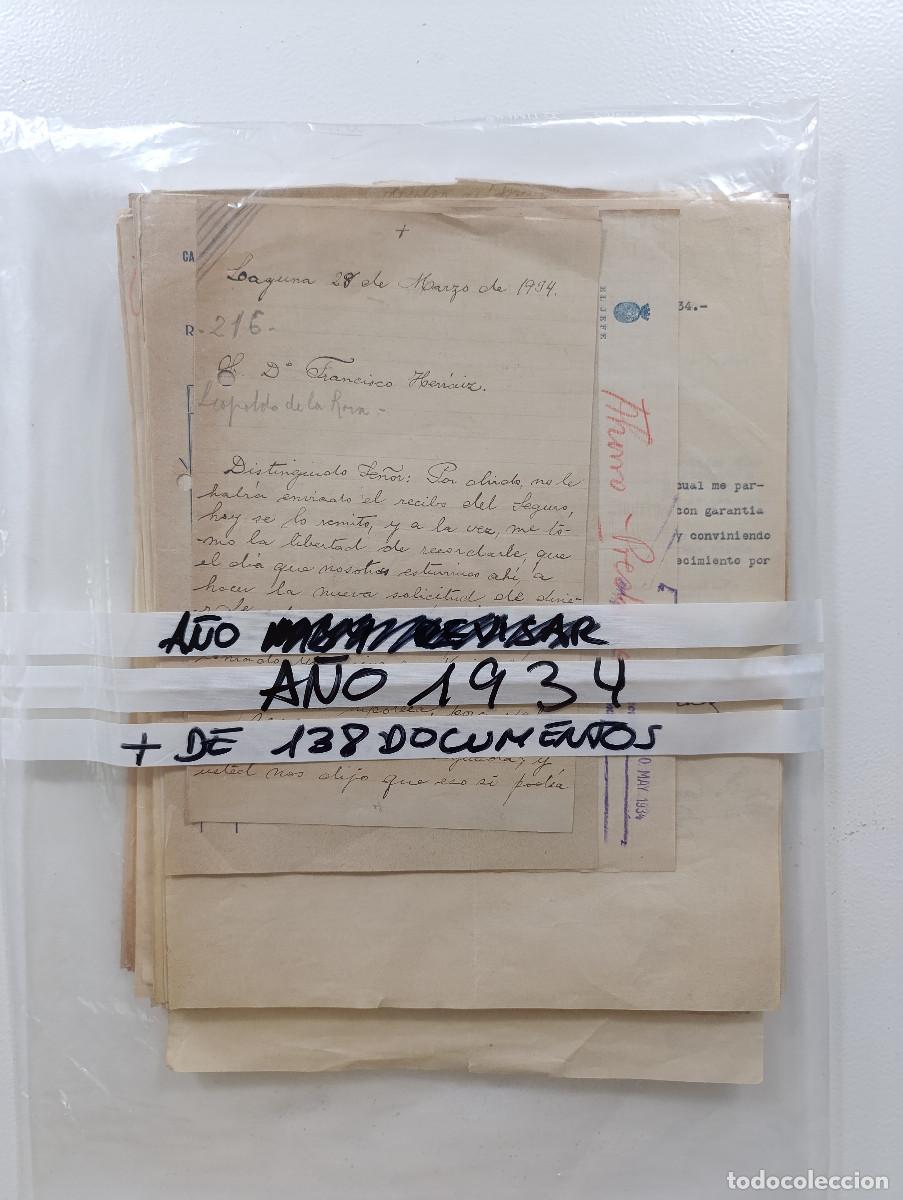 CA
+
Laguna 28 de Marzo de 1934.
R-216-
Sr. Dº Francisco Hernáiz.
Leopoldo de la Rosa-
Distinguido Señor: Por olvido, no le
habría enviado el recibo del Seguro,
hoy se lo remito, y a la vez, me to-
mo la libertad de recordarle que
el día que nosotros estuvimos ahí, a
hacer la nueva solicitud de dine-
AÑO REVISAR
AÑO 1934
+ DE 138 DOCUMENTOS
y
usted nos dijo que eso si podía
EL JEFE
Ahorro-
0 MAY. 1934
34.-
cual me par-
con garantia
y conviniendo
ecimiento por
todocoleccion